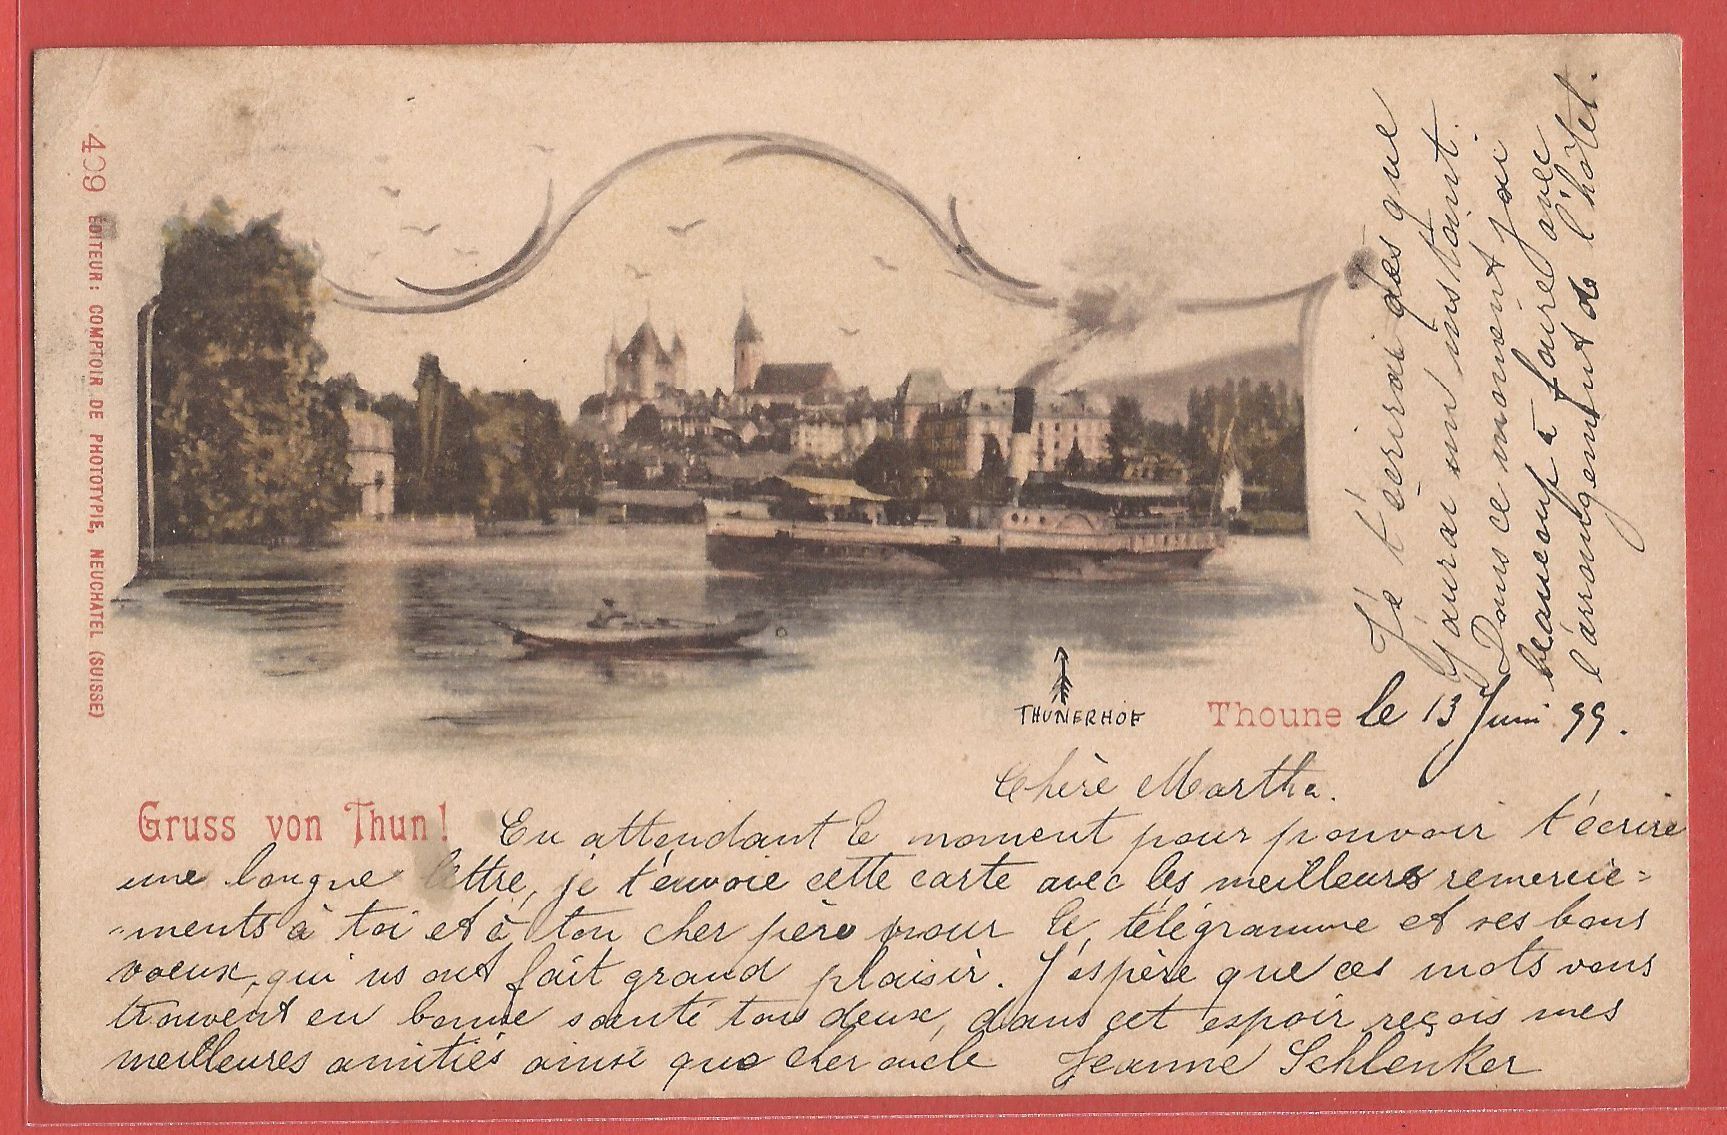 409 ÉDITEUR: COMPTOIR DE PHOTOTYPIE, NEUCHATEL (SUISSE)
THUNERHOF
Thoune le 13 Juni 99.
Chère Martha.
Gruss von Thun! En attendant le moment pour pouvoir t'écrire
une longue lettre, je t'envoie cette carte avec les meilleurs remercie=
-ments à toi et à ton cher père pour le télégramme et ses bons
voeux, qui ns ont fait grand plaisir. J'espère que ces mots vous
trouvent en bonne santé tous deux, dans cet espoir reçois mes
meilleures amitiés ainsi que cher oncle Jeanne Schlenker
Je t'écrirai dès que
j'aurai un instant.
Dans ce moment j'ai
beaucoup à faire avec
l'arrangement de l'hôtel.